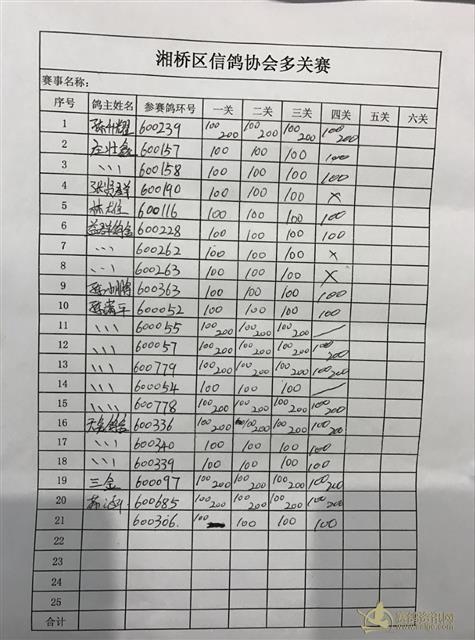 湘桥区信鸽协会多关赛
赛事名称:
序号 鸽主姓名 参赛鸽环号 一关 二关 三关 四关 五关 六关
1 600239 100 200 100 200 100 200 100 200
2 600157 100 100 100 100
3 、、、 600158 100 100 100 100
4 600190 100 100 100 ×
5 600116 100 100 100 100
6 600228 100 100 100 100
7 、、、 600262 100 100 100 ×
8 、、、 600263 100 100 100 ×
9 600363 100 100 100 100
10 600052 100 100 100 100
11 、、、 600055 100 200 100 200 100 200 /
12 、、、 600057 100 200 100 200 100 200 100 200
13 、、、 600779 100 200 100 200 100 200 100 200
14 、、、 600054 100 100 100 /
15 、、、 600778 100 200 100 200 100 200 100 200
16 600336 100 200 100 200 100 200 100 200
17 、、、 600340 100 100 100 100
18 、、、 600339 100 100 100 100
19 三金 600097 100 200 100 200 100 200 100 200
20 600685 100 200 100 200 100 200 100 200
21 600306. 100 100 100 100
22
23
24
25
合计